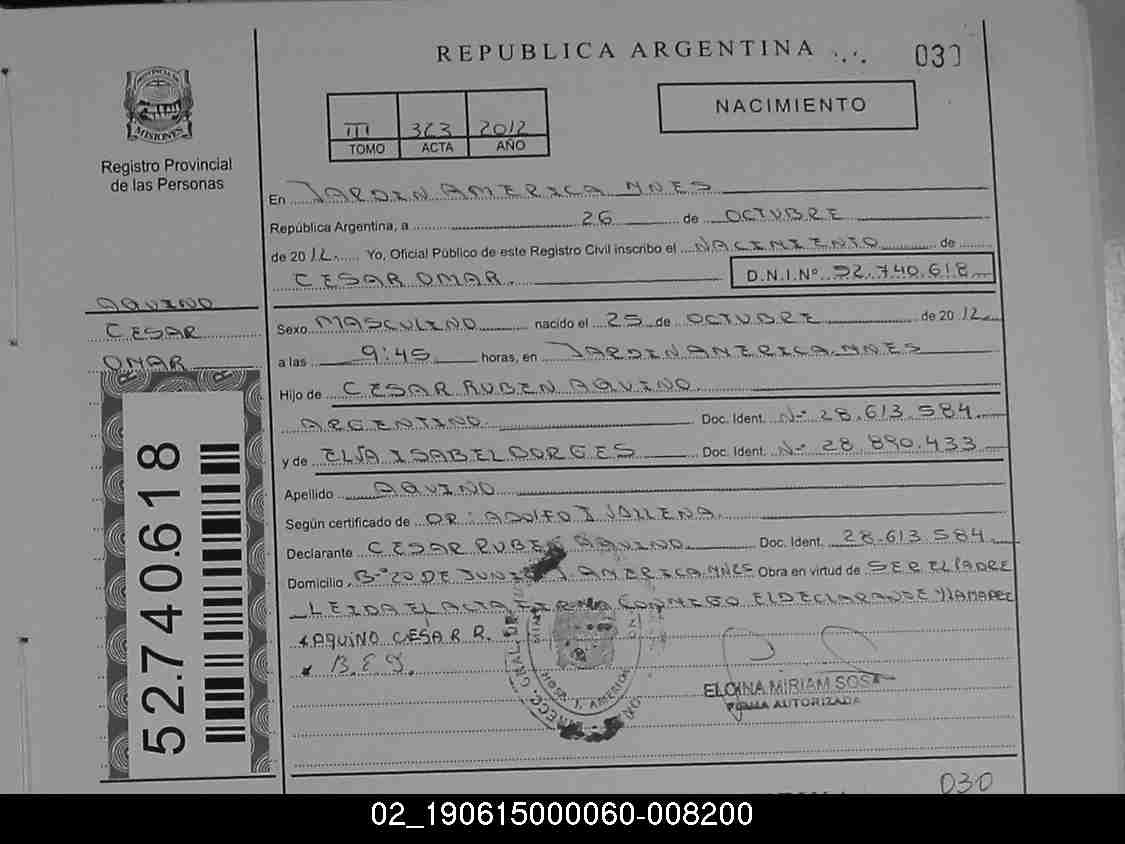 REPUBLICA ARGENTINA
030
PROVINCIA DE
MISIONES
Registro Provincial
de las Personas
III 363 2012
TOMO ACTA AÑO
NACIMIENTO
En JARDIN AMERICA MNES
República Argentina, a 26 de OCTUBRE
de 2012 Yo, Oficial Público de este Registro Civil inscribo el NACIMIENTO de
CESAR OMAR. D.N.I.Nº 52.740.618
AQUINO
CESAR
OMAR
Sexo MASCULINO nacido el 25 de OCTUBRE de 2012
a las 9:45 horas, en JARDIN AMERICA MNES
Hijo de CESAR RUBEN AQUINO
ARGENTINO Doc. Ident. Nº 28.613.584
y de ISABEL BORGES Doc. Ident. Nº 28.890.433
Apellido AQUINO
Según certificado de DR. ADOLFO
Declarante CESAR RUBEN AQUINO Doc. Ident. 28.613.584
Domicilio Bº 20 DE JUNIO J. AMERICA MNES Obra en virtud de SER EL PADRE
LEIDA EL ACTA FIRMA CONMIGO EL DECLARANTE Y LA MADRE
AQUINO CESAR R.
B. E. I.
HOSP. J. AMERICA
ELOINA MIRIAM SOSA
FIRMA AUTORIZADA
52.740.618
030
02_190615000060-008200